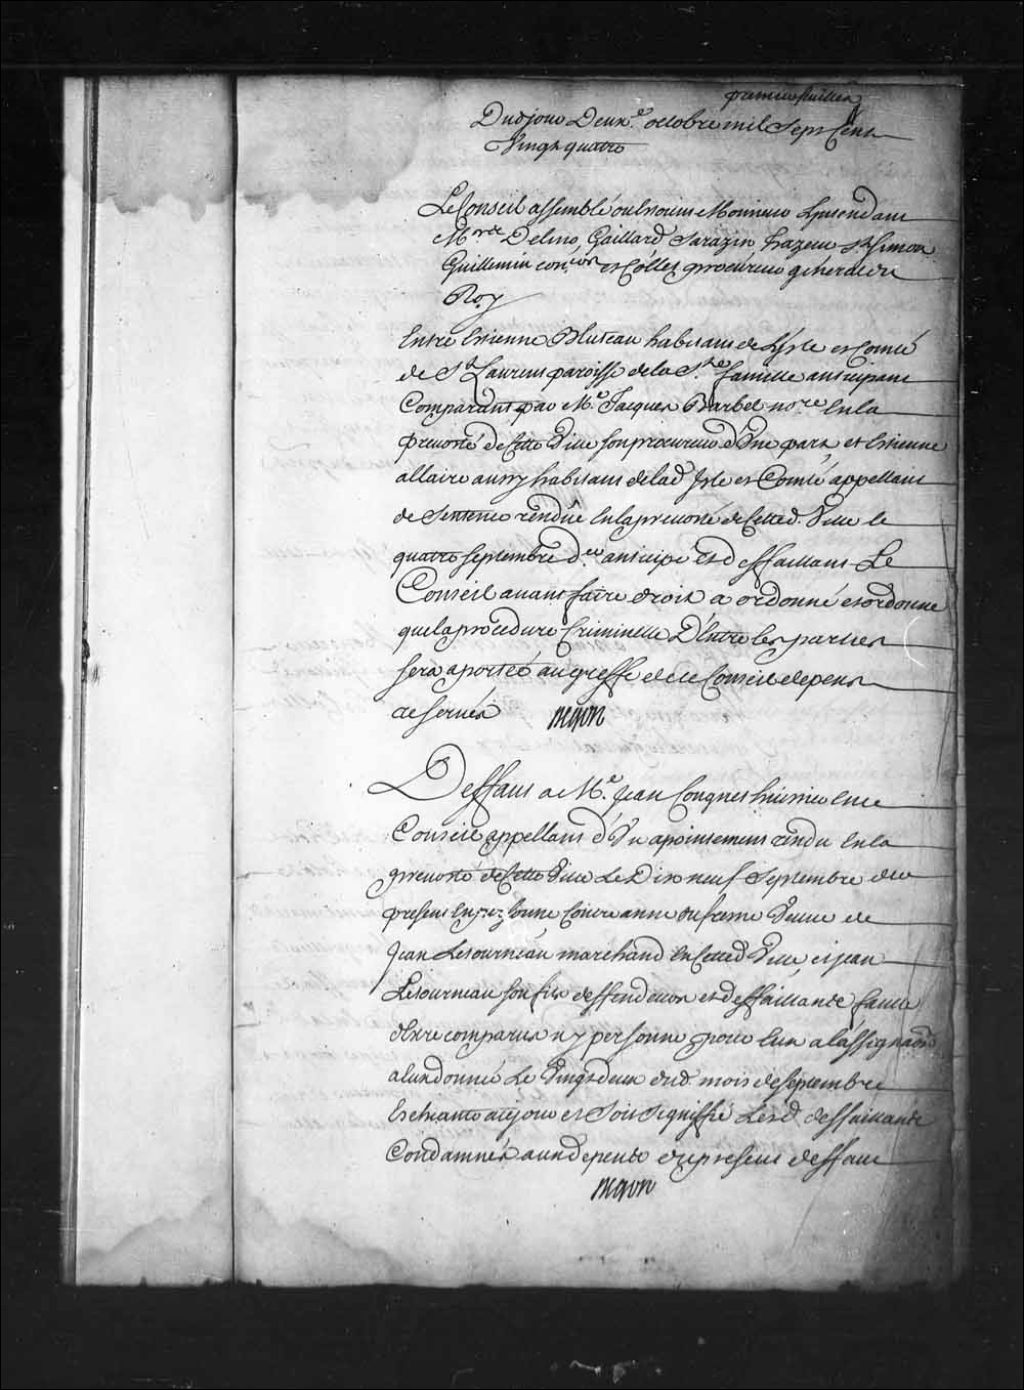 premier feuillet
Dud jour Deux.e octobre mil Sept Cent
Vingt quatre
Le Conseil assemblé ou estoient Monsieur L'intendant
M.rs De Lino, Gaillard Sarazin hazeur St Simon
Guillemin con.ers et Collet procureur général du
Roy
Entre Estienne Bluteau habitant de L'isle et Comté
de St Laurens paroisse de la S.te famille anticipant
Comparant par M.e Jacques Barbel no.re En la
prevosté de Cette Ville son procureur d'Une part, et Estienne
allaire aussy habitant de lad Isle et Comté appellant
de Sentence rendüe En la prevosté de Cetted. Ville le
quatre Septembre d.er anticipé et deffaillant Le
Conseil avant faire droit a ordonné et ordonne
que la procedure Criminelle D'Entre les parties
sera aportée au greffe de ce Conseil depens
reservés begon
Deffaut a M.e Jean Congnet huissier En ce
Conseil appellant d'Un apointement rendu En la
prevosté de Cette Ville Le Dix neuf Septembre d.er
present En personne Contre anne dufresne Veuve de
Jean Letourneau marchand En Cetted Ville, et jean
Letourneau son fils deffendeurs et deffaillants faute
d'Etre comparus ny personne pour Eux a l'assignaōn
a Eux donnée Le Vingt deux dud. mois de Septembre
Escheante a ce jour et Soit Signiffié Lesd. deffaillants
Condamnés aux depens du present deffaut
begon